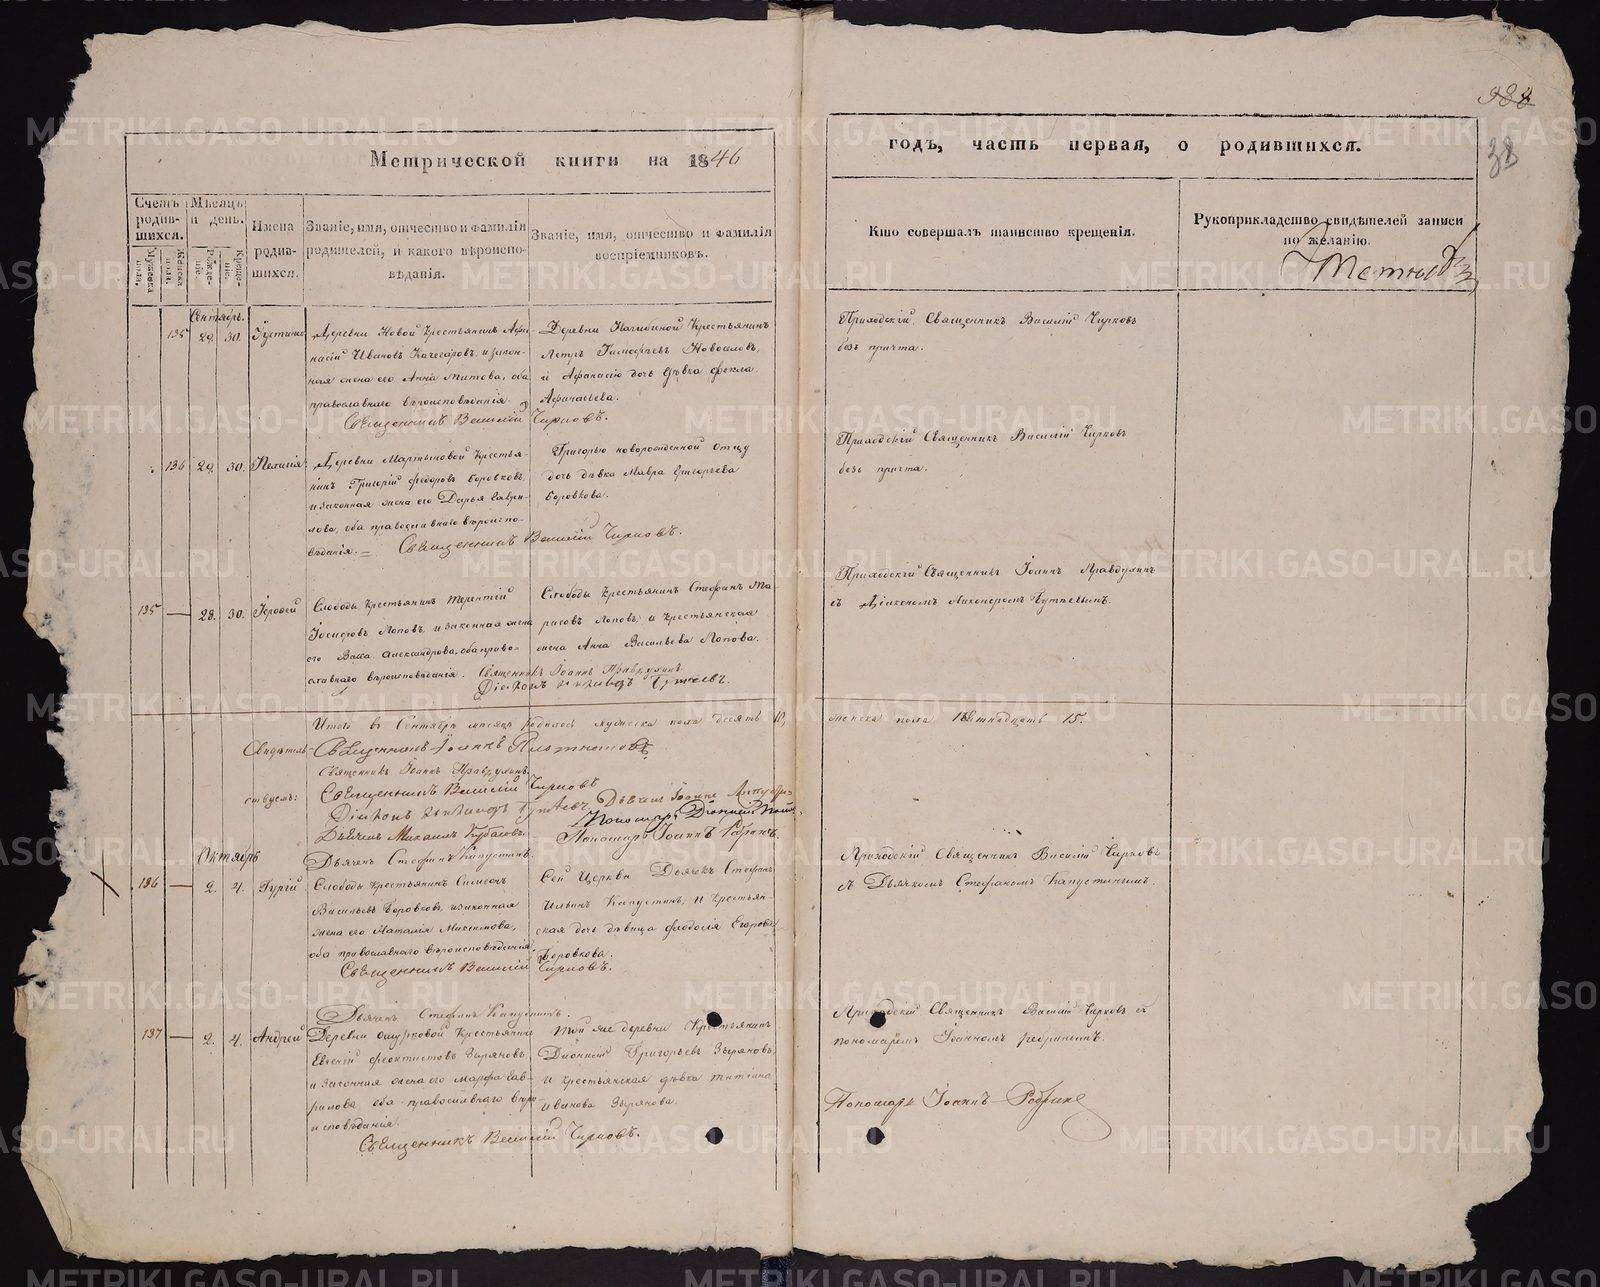 Метрической книги на 1846
годъ, часть первая, о родившихся.
Счетъ родившихся.
Мужеска пола.
Женска пола.
Мѣсяцъ и день.
Рожденіе.
Крещеніе.
Имена родившихся.
Званіе, имя, отчество и фамилія родителей, и какого вѣроисповѣданія.
Званіе, имя, отчество и фамилія воспріемниковъ.
Кто совершалъ таинство крещенія.
Рукоприкладство свидѣтелей записи по желанію.
38
Сентябрь.
135 29. 30.
Деревни Новой Крестьянинъ Афа-
насій Ивановъ и закон-
ная жена его Анна Титова, оба
православнаго вѣроисповѣданія
Деревни Крестьянинъ
Петръ Тимофеевъ
и Афанасію дочь дѣвка Фекла
Афанасьева.
Священникъ Василій Чирковъ.
Приходскій Священникъ Василій Чирковъ
безъ причта.
136 29. 30. Пелагія
Деревни Мартыновой Крестья-
нинъ Григорій Федоровъ Боровковъ,
и законная жена его Дарья Гаври-
лова, оба православнаго вѣроиспо-
вѣданія.
Григорью новорожденной отцу
дочь дѣвка Мавра Григорьева
Боровкова.
Священникъ Василій Чирковъ.
Приходскій Священникъ Василій Чирковъ
безъ причта.
135 — 28. 30. Іерофей
Слободы Крестьянинъ Терентій
Іосифовъ Поповъ, и законная жена
его Васса Александрова, оба право-
славнаго вѣроисповѣданія.
Слободы Крестьянинъ Стефанъ
Поповъ, и крестьянская
жена Анна Васильева Попова.
Священникъ Іоаннъ Правдухинъ
Діаконъ Никаноръ
Приходскій Священникъ Іоаннъ Правдухинъ
съ Діакономъ Никаноромъ
Итого въ Сентябрѣ мѣсяцѣ родилось мужеска пола десять 10,
женска пола пятнадцать 15.
Свидѣтель-
ствуемъ:
Священникъ Іоаннъ
Священникъ Іоаннъ Правдухинъ.
Священникъ Василій Чирковъ
Діаконъ Никаноръ
Дьячекъ Іоаннъ
Пономарь Діонисій
Дьячекъ Михаилъ
Пономарь Іоаннъ
Дьячекъ Стефанъ Капустинъ.
Октябрь
136 — 2. 4. Гурій
Слободы Крестьянинъ Симеонъ
Васильевъ Боровковъ, и законная
жена его Наталія Максимова,
оба православнаго вѣроисповѣданія
Сей Церкви Дьячекъ Стефанъ
Ильинъ Капустинъ, и крестьян-
ская дочь дѣвица Феодосія Егорова
Боровкова.
Священникъ Василій Чирковъ.
Дьячекъ Стефанъ Капустинъ.
Приходскій Священникъ Василій Чирковъ
съ Дьячкомъ Стефаномъ Капустинымъ.
137 — 2. 4. Андрей
Деревни Ошурковой Крестьянинъ
Евгеній Феоктистовъ Зыряновъ,
и законная жена его Марфа Гав-
рилова, оба православнаго вѣро-
исповѣданія.
Той же деревни Крестьянинъ
Діонисій Григорьевъ Зыряновъ,
и крестьянская дѣвка Татіана
Иванова Зырянова.
Священникъ Василій Чирковъ.
Приходскій Священникъ Василій Чирковъ съ
пономаремъ Іоанномъ
Пономарь Іоаннъ
METRIKI.GASO-URAL.RU